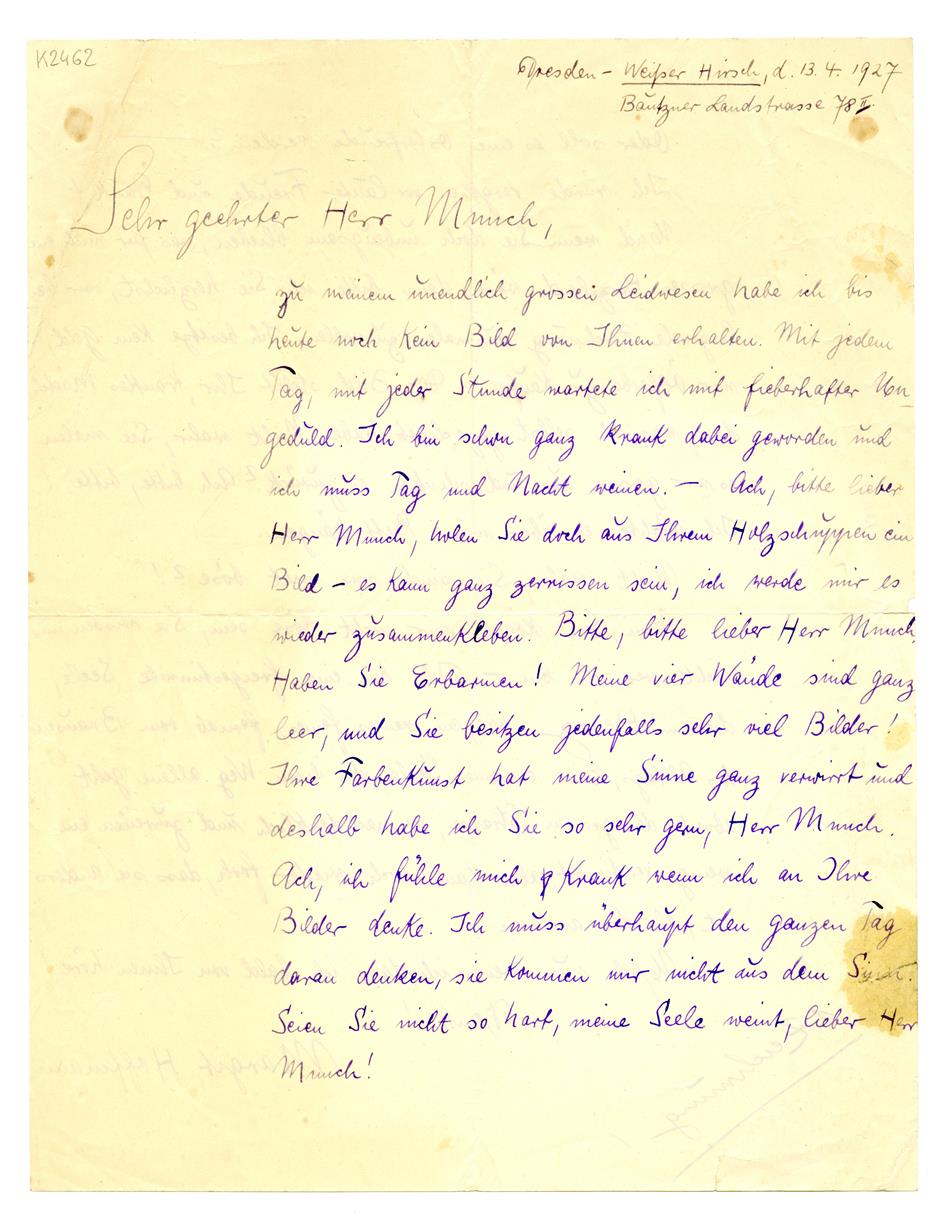 K2462
Dresden – Weißer Hirsch, d. 13. 4. 1927
Bautzner Landstrasse 78 II.
Sehr geehrter Herr Munch,
zu meinem unendlich grossen Leidwesen habe ich bis
heute noch kein Bild von Ihnen erhalten. Mit jedem
Tag, mit jeder Stunde wartete ich mit fieberhafter Un-
geduld. Ich bin schon ganz krank dabei geworden und
ich muss Tag und Nacht weinen. – Ach, bitte lieber
Herr Munch, holen Sie doch aus Ihrem Holzschuppen ein
Bild – es kann ganz zerrissen sein, ich werde mir es
wieder zusammenkleben. Bitte, bitte lieber Herr Munch.
Haben Sie Erbarmen! Meine vier Wände sind ganz
leer, und Sie besitzen jedenfalls sehr viel Bilder!
Ihre Farbenkunst hat meine Sinne ganz verwirrt und
deshalb habe ich Sie so sehr gern, Herr Munch.
Ach, ich fühle mich krank wenn ich an Ihre
Bilder denke. Ich muss überhaupt den ganzen Tag
daran denken, sie kommen mir nicht aus dem Sinn.
Seien Sie nicht so hart, meine Seele weint, lieber Herr
Munch!